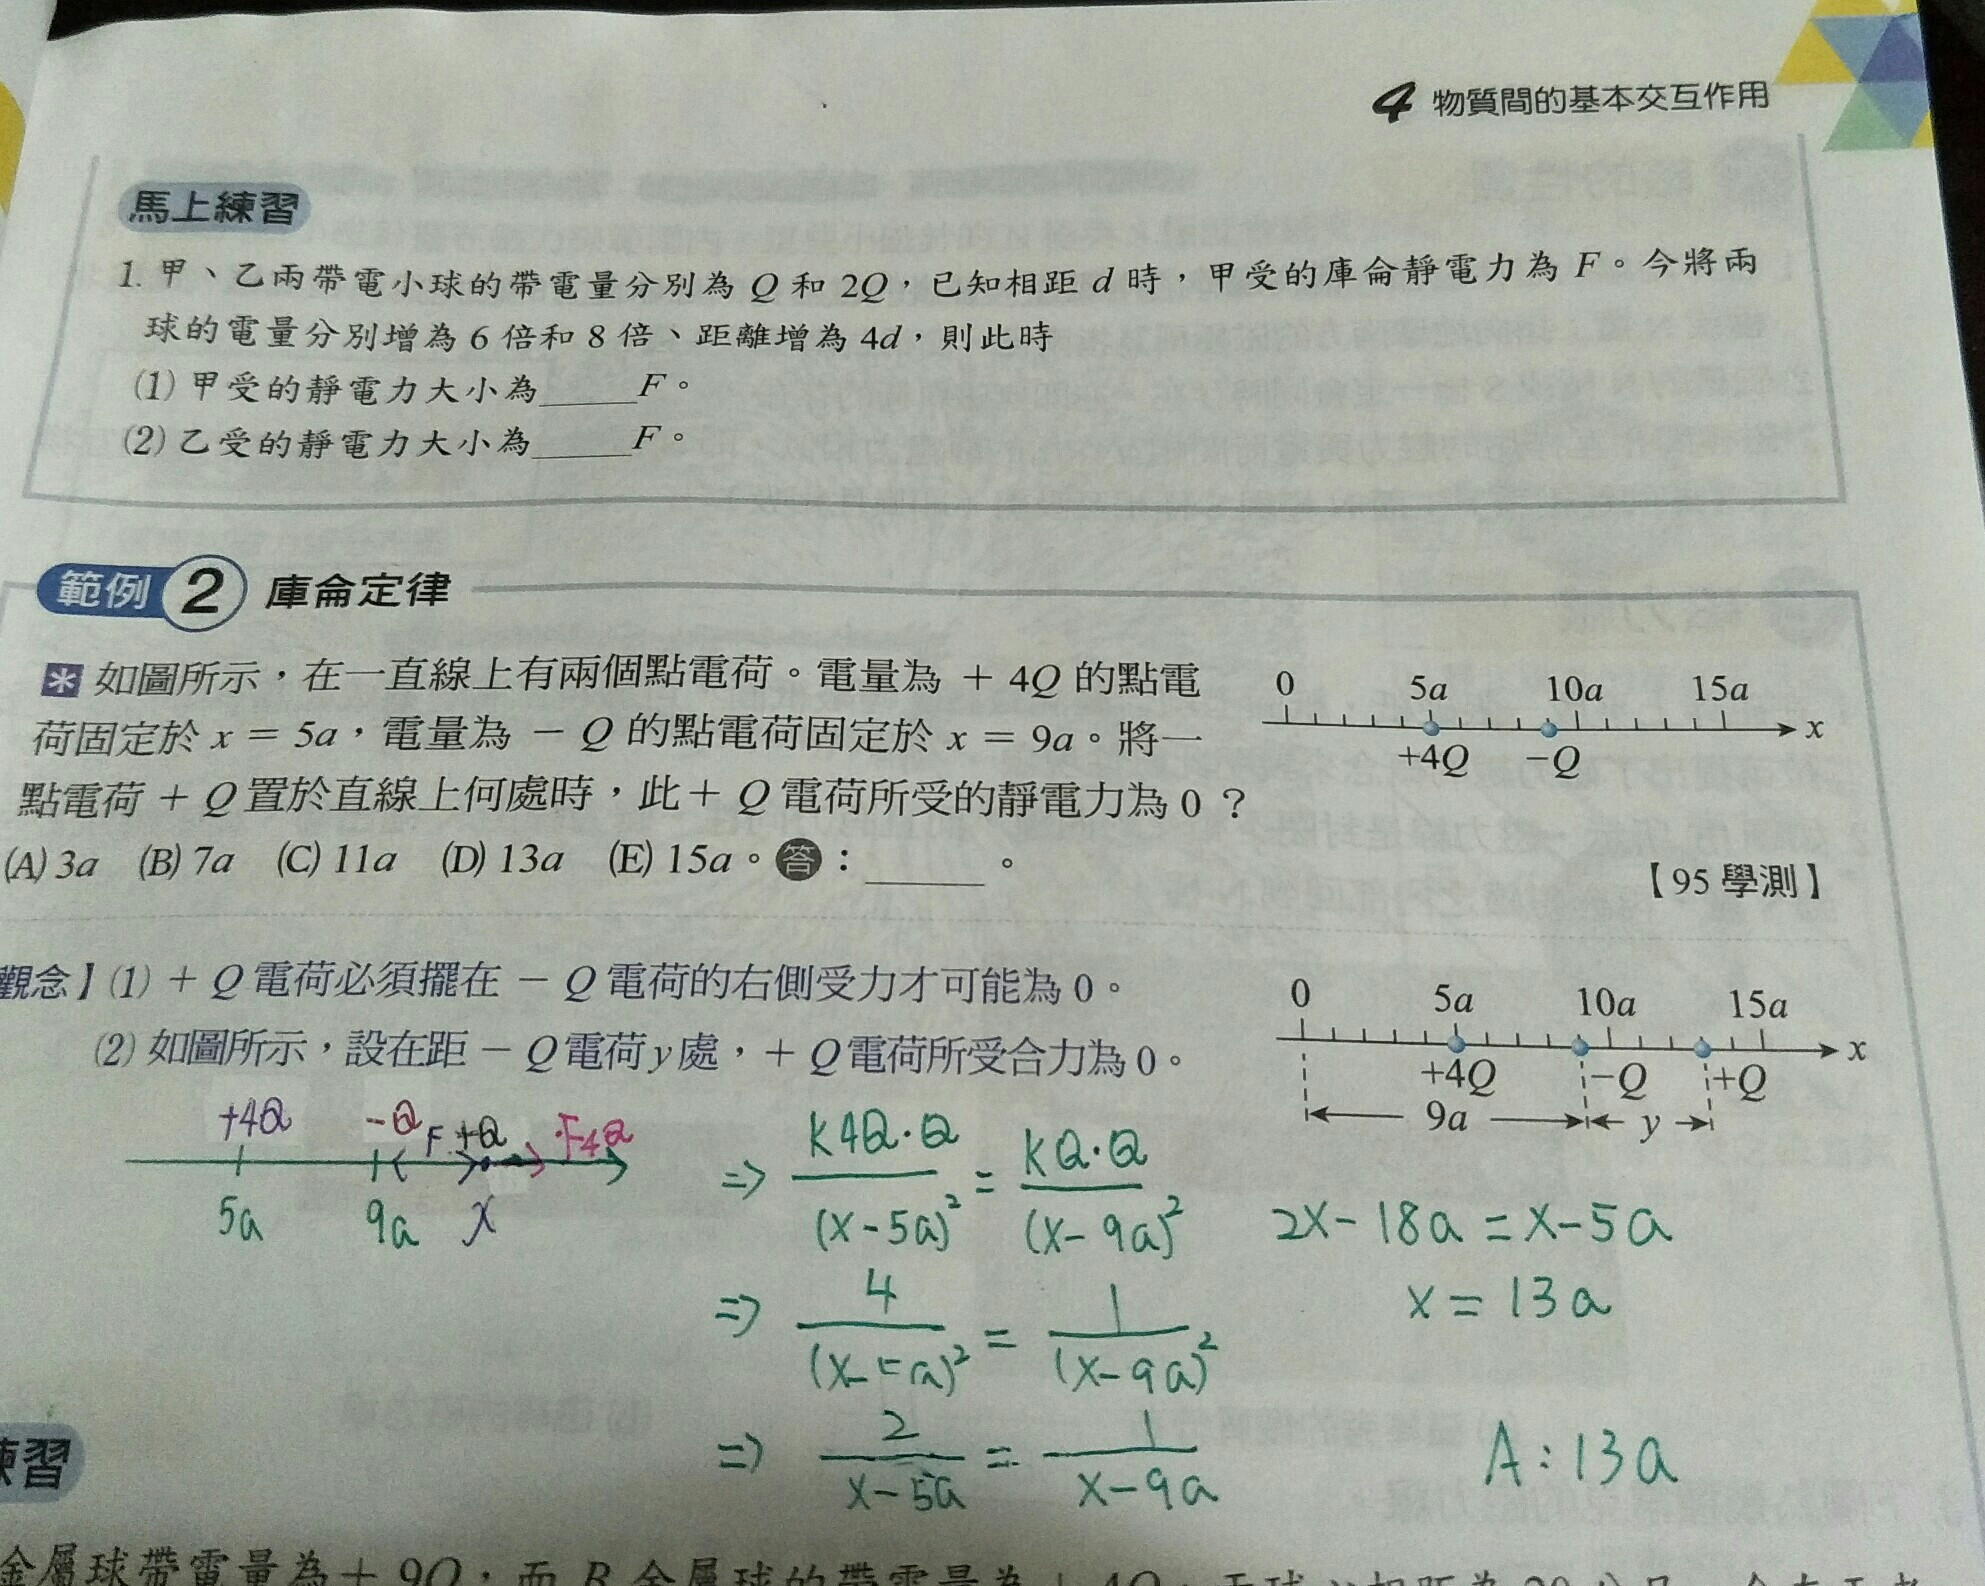 4 物質間的基本交互作用
馬上練習
1. 甲、乙兩帶電小球的帶電量分別為 Q 和 2Q，已知相距 d 時，甲受的庫侖靜電力為 F。今將兩
球的電量分別增為 6 倍和 8 倍、距離增為 4d，則此時
(1) 甲受的靜電力大小為_____F。
(2) 乙受的靜電力大小為_____F。
範例 2 庫侖定律
* 如圖所示，在一直線上有兩個點電荷。電量為 + 4Q 的點電
荷固定於 x = 5a，電量為 − Q 的點電荷固定於 x = 9a。將一
點電荷 + Q 置於直線上何處時，此 + Q 電荷所受的靜電力為 0 ？
(A) 3a (B) 7a (C) 11a (D) 13a (E) 15a。答：______。
【95 學測】
0 5a 10a 15a
x
+4Q −Q
觀念】(1) + Q 電荷必須擺在 − Q 電荷的右側受力才可能為 0。
(2) 如圖所示，設在距 − Q 電荷 y 處，+ Q 電荷所受合力為 0。
0 5a 10a 15a
x
+4Q −Q +Q
9a y
+4Q -Q F +Q F4Q
5a 9a x
⇒ K4Q·Q/(x-5a)² = KQ·Q/(x-9a)²
⇒ 4/(x-5a)² = 1/(x-9a)²
⇒ 2/(x-5a) = 1/(x-9a)
2x-18a = x-5a
x = 13a
A : 13a
練習
金屬球帶電量為 + 9Q，而 B 金屬球的帶電量為 + 4Q